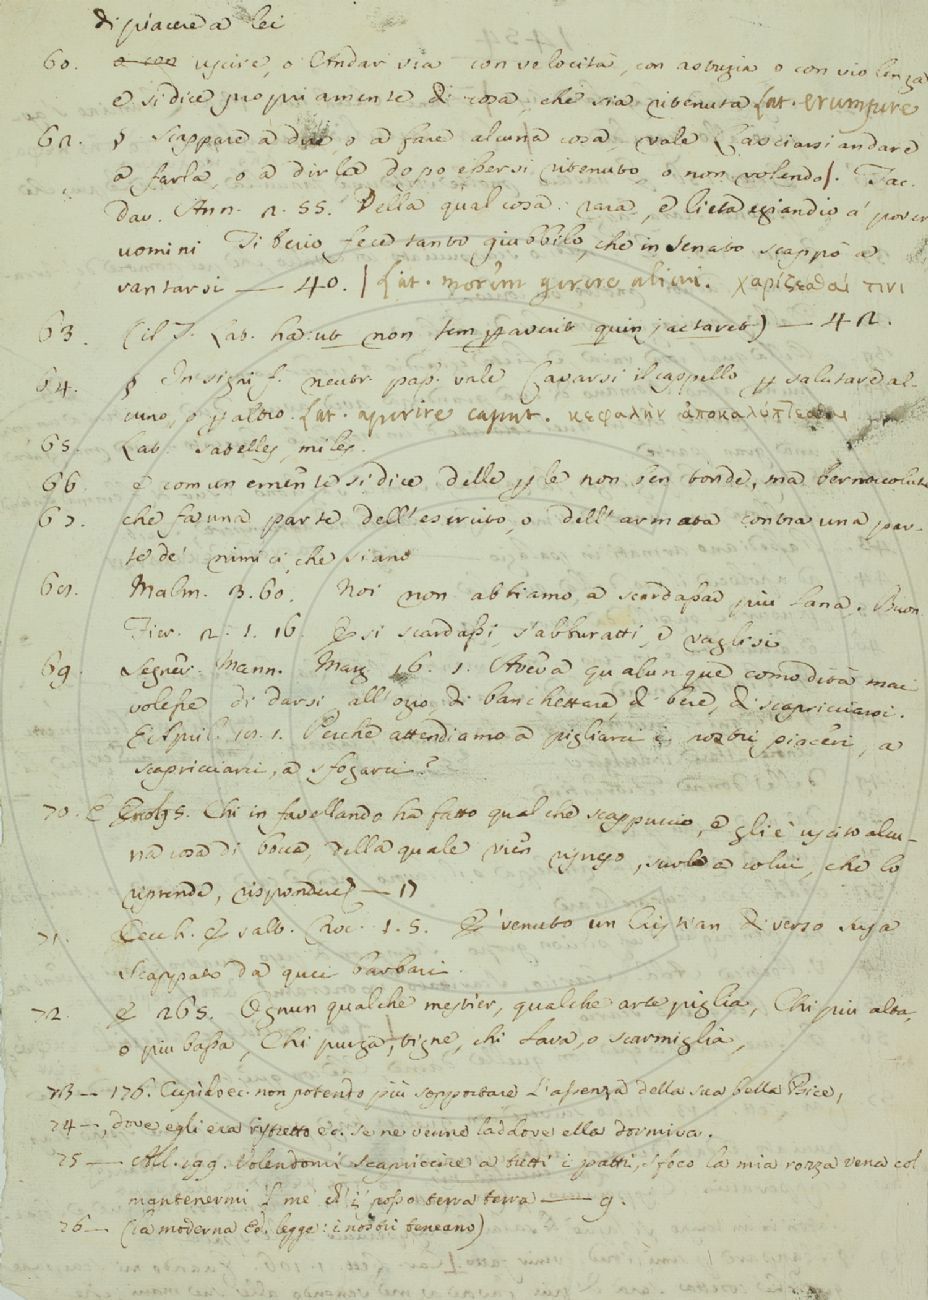 di piacere a lei
60. uscire, o Andar via con velocità, con astuzia, o con violenza
e si dice propriamente di cosa, che sia ritenuta Lat. erumpere
62. § Scappare a dire, o a fare alcuna cosa vale Lasciarsi andare
a farla, o a dirla dopo essersi ritenuto, o non volendo/. Tac.
Dav. Ann. 2. 55. Della qual cosa rara, e lieta eziandio a' pover
uomini Tiberio fece tanto giubbilo, che in Senato scappò a
vantarsi — 40. | Lat. morem gerere alicui. χαρίζεσθαί τινι
63. (il T. Lat. ha: ut non temperaverit quin jactaret) — 42.
64. § In signif. neutr. pass. vale Cavarsi il cappello p salutare al-
cuno, o p altro. Lat. aperire caput. κεφαλὴν ἀποκαλύπτεσθαι
65. Lat. miles.
66. e comunemente si dice delle p le non ben tonde, ma bernoccolute
67. che fa una parte dell' esercito, o dell' armata contra una par-
te de' nimici, che siano
Malm. 3. 60. Noi non abbiamo a scardassar più lana. Buon.
Fier. 2. 1. 16. E si scardassi, s'abburatti, e vaglisi
69. Segner. Mann. Marz. 16. 1. Aveva qualunque comodità mai
volesse di darsi all'ozio, di banchettare, di bere, di scapricciarsi.
E Perchè attendiamo a pigliarci i nostri piaceri, a
scapricciarci, a sfogarci?
70. E Ercol 95. Chi in favellando ha fatto qualche scappuccio, e gli è uscito alcu-
na cosa di bocca, della quale vien ripreso, suole a colui, che lo
riprende, rispondere — 17
71. Cecch. Esalt. Cr. 1. 5. È venuto un Cristian di verso Susa
Scappato da quei barbari.
72. E 265. Ognun qualche mestier, qualche arte piglia, Chi più alta,
o più bassa, Chi purga, tigne, chi lava, o scarmiglia,
73 — 176. Cupido ec. non potendo più sopportare l'assenza della sua bella Psice,
74 —, dove egli era ristretto ec. se ne venne laddove ella dormiva.
75 — All. 199. Volendomi scapriccire a tutti i patti, sfoco la mia rozza vena col
mantenermi terra terra — 9.
76 — (la moderna Ed. legge: i nostri teneano)